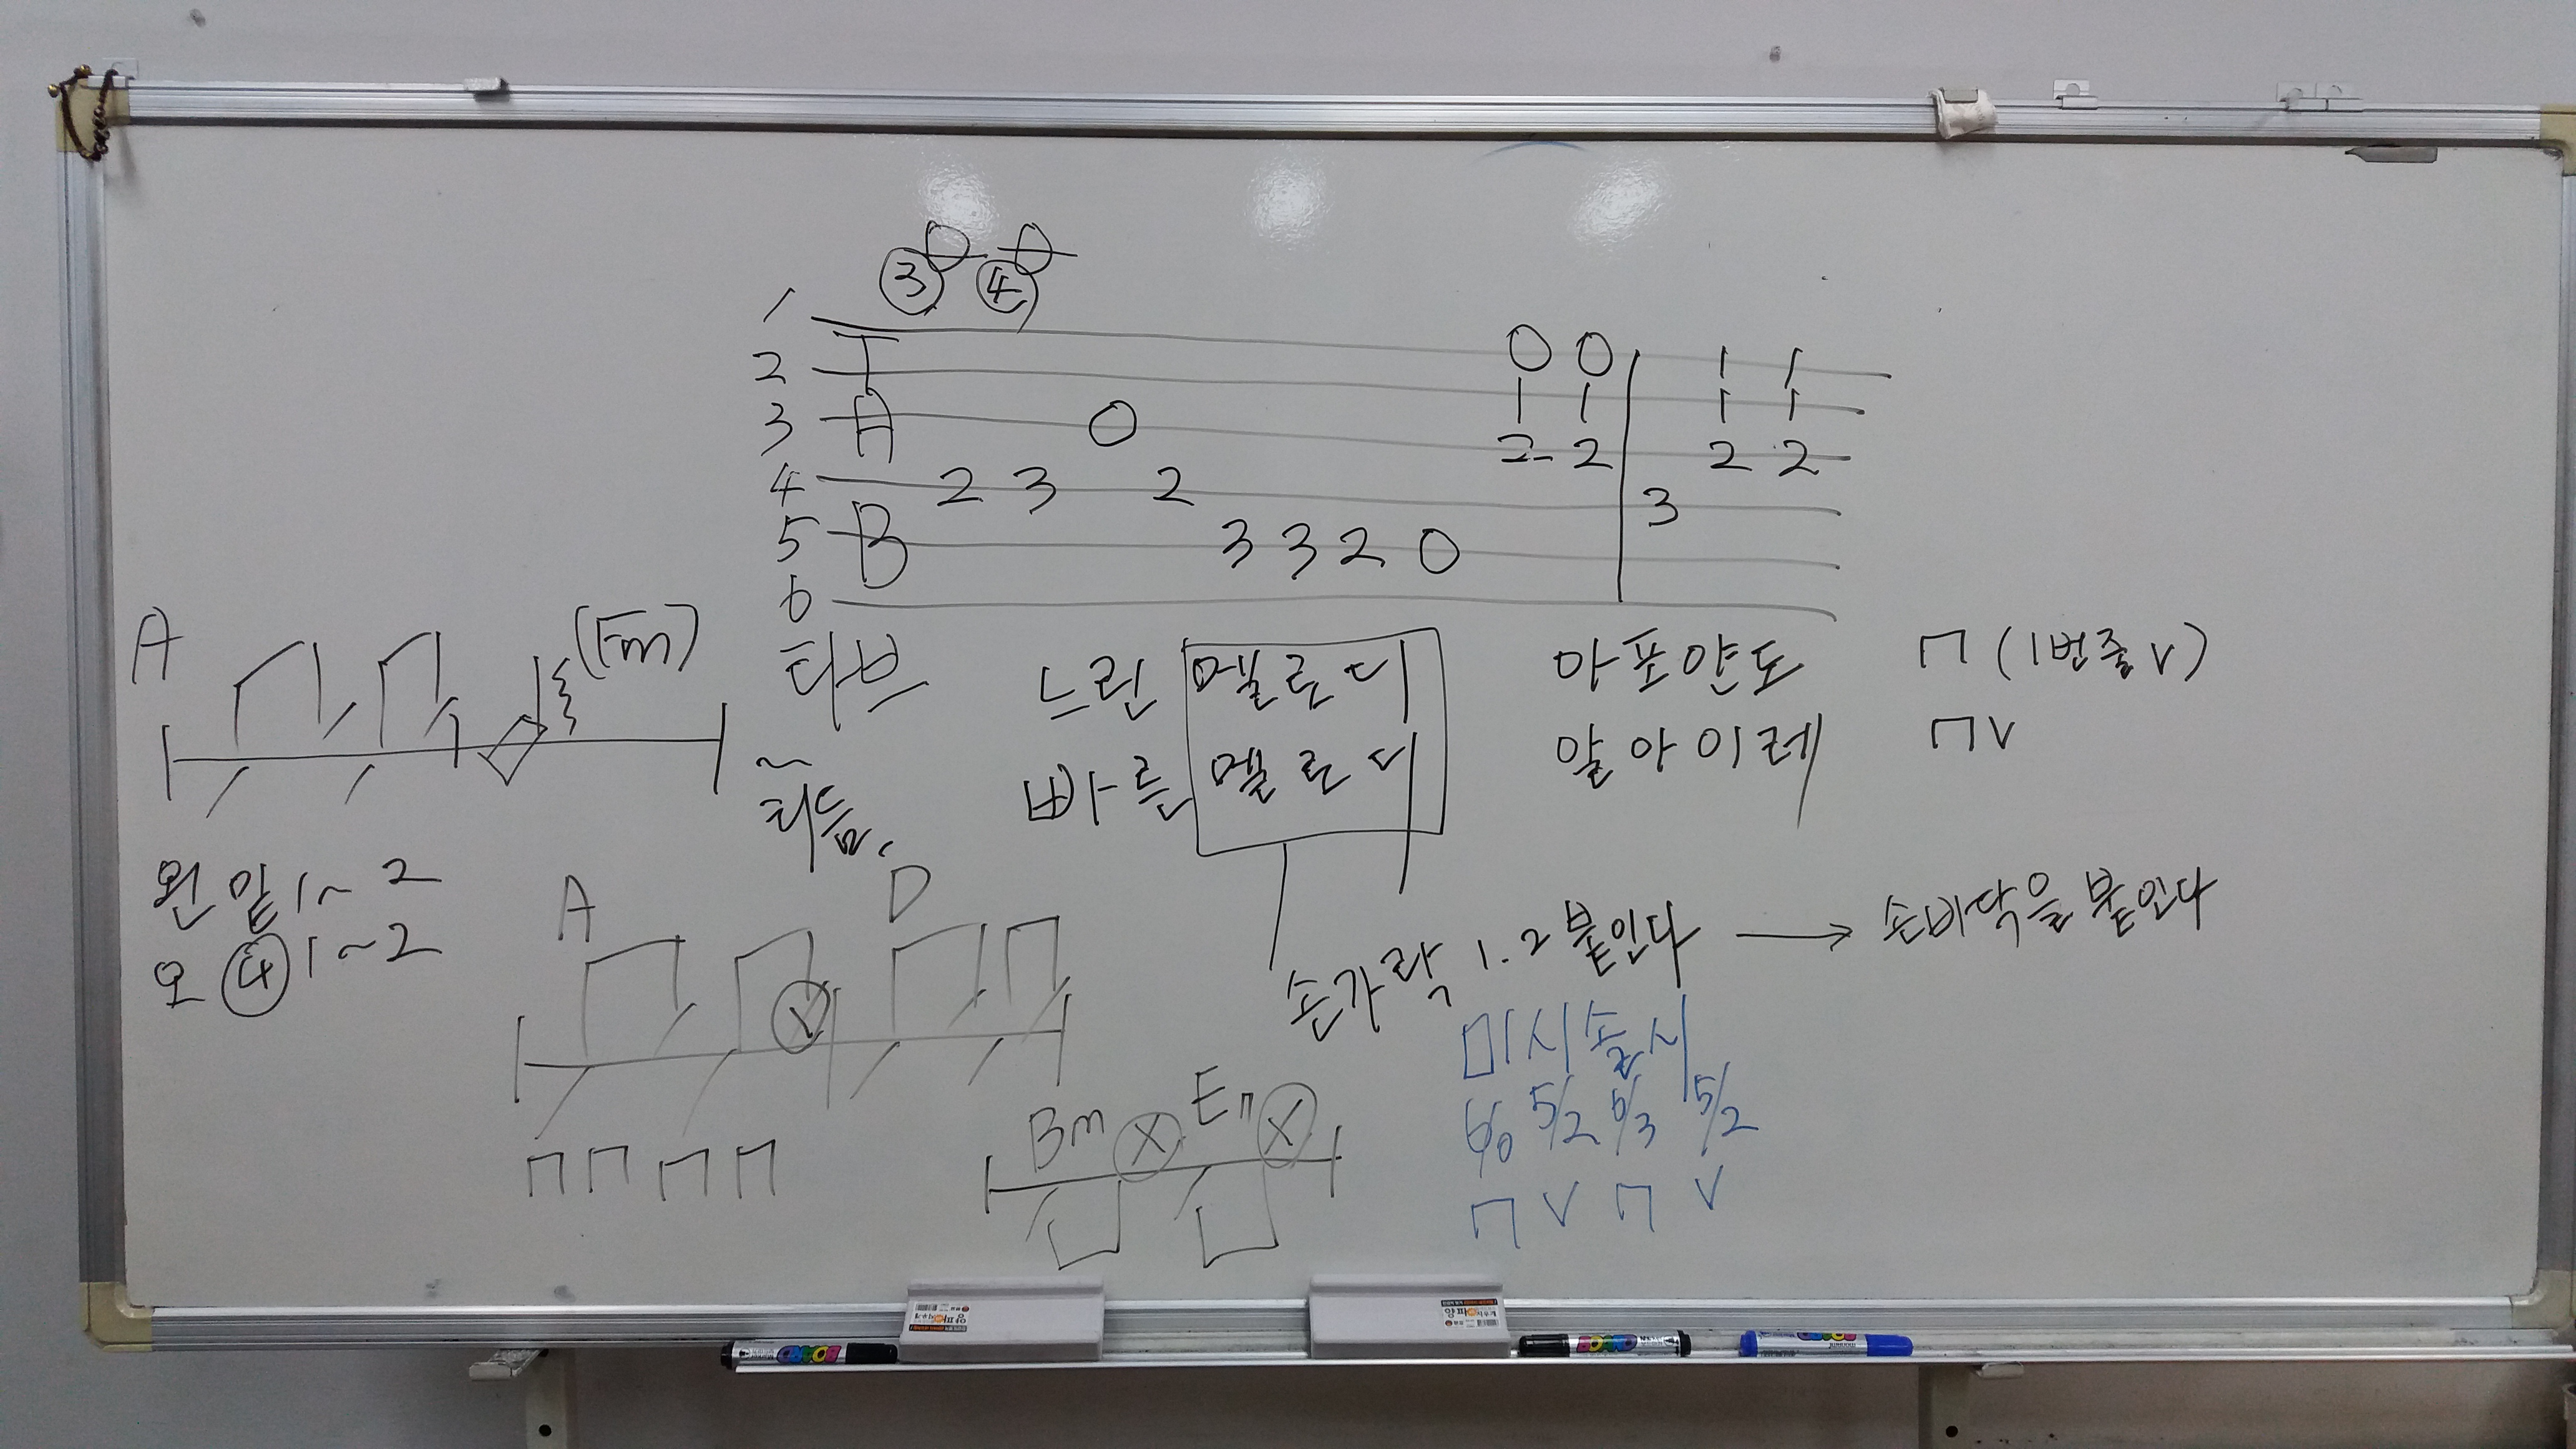 ③ ④
1
2 T 0 0 1 1
3 A 0 1 1 1 1
4 2 3 2 2 2 2 2
5 B 3 3 2 0 3
6
A (Fm)
타브 느린 멜로디 아포얀도 ㄇ (1번줄 V)
~ 빠른 멜로디 알아이레 ㄇ V
리듬.
왼 밑 1~2
오 ④ 1~2
A D
손가락 1.2 붙인다 → 손바닥을 붙인다
ㄇ ㄇ ㄇ ㄇ
Bm X X
미 시 솔 시
6/0 5/2 6/3 5/2
ㄇ V ㄇ V
BOARD
BOARD
BOARD